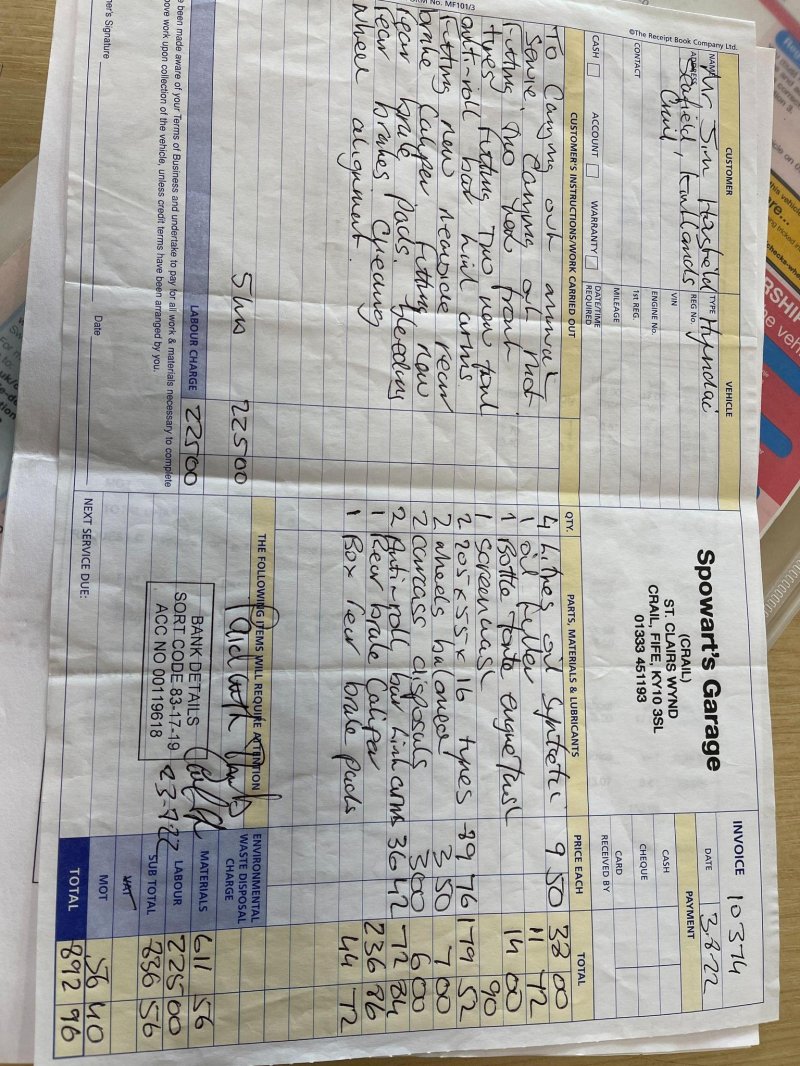 FORM No. MF101/3
©The Receipt Book Company Ltd.
CUSTOMER
NAME Mr Jim
ADDRESS Seafield,
Crail
CONTACT
VEHICLE
TYPE Hyndai
REG No.
VIN
ENGINE No.
1st REG.
MILEAGE
CASH
ACCOUNT
WARRANTY
DATE/TIME REQUIRED
CUSTOMER'S INSTRUCTIONS/WORK CARRIED OUT
To Carrying out annual
service, Carrying out mot
fitting two front
tyres fitting two new front
anti-roll bar link arms
fitting new nearside rear
brake caliper fitting new
rear brake pads. bleeding
rear brakes
wheel alignment.
5 hrs 225 00
LABOUR CHARGE 225 00
been made aware of your Terms of Business and undertake to pay for all work & materials necessary to complete
above work upon collection of the vehicle, unless credit terms have been arranged by you.
Signature
Date
Spowart's Garage
(CRAIL)
ST. CLAIRS WYND
CRAIL, FIFE, KY10 3SL
01333 451193
INVOICE 10374
DATE 3.8.22
PAYMENT
CASH
CHEQUE
CARD
RECEIVED BY
QTY. PARTS, MATERIALS & LUBRICANTS PRICE EACH TOTAL
4 Litres oil synthetic 9 50 38 00
1 oil filter 11 72
1 Bottle 14 00
1 Screenwash 90
2 205 x 55 x 16 tyres 89 76 179 52
2 wheels balanced 3 50 7 00
2 carcass disposals 3 00 6 00
2 Anti-roll bar link arms 36 42 72 84
1 Rear brake Caliper 236 86
1 Box rear brake pads 44 72
THE FOLLOWING ITEMS WILL REQUIRE ATTENTION
Paid with Thanks
23-8-22
BANK DETAILS
SORT CODE 83-17-19
ACC NO 00119618
NEXT SERVICE DUE:
ENVIRONMENTAL WASTE DISPOSAL CHARGE
MATERIALS 611 56
LABOUR 225 00
SUB TOTAL 836 56
VAT
MOT 56 40
TOTAL 892 96